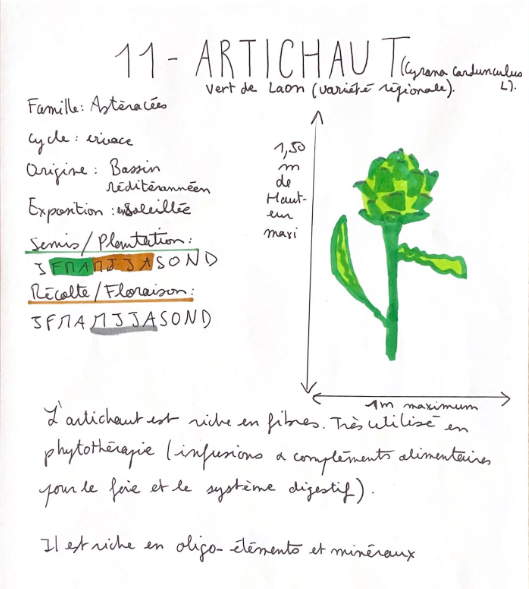 11 - ARTICHAUT (Cyrana Cardunculus L).
Vert de Laon (variété régionale).
Famille : Astéracées
Cycle : vivace
Origine : Bassin
méditérannéen
Exposition : ensoleillée
Semis / Plantation :
J F M A M J J A S O N D
Récolte / Floraison :
J F M A M J J A S O N D
1,50
m
de
Haut-
eur
maxi
1m maximum
L'artichaut est riche en fibres. Très utilisé en
phytothérapie (infusions & compléments alimentaires
pour le foie et le système digestif).
Il est riche en oligo-éléments et minéraux